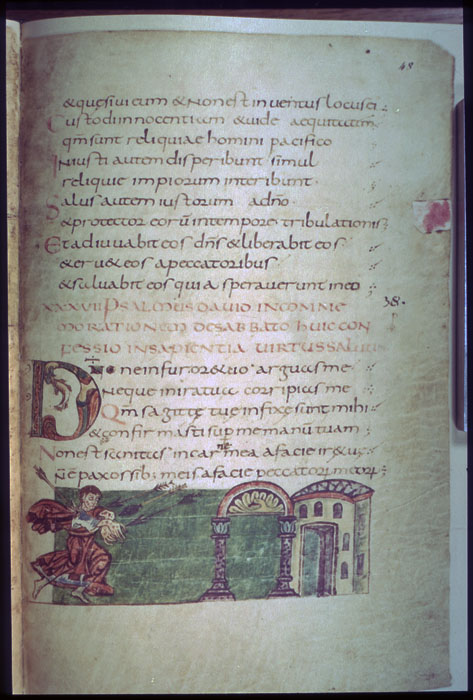 48
& quęsiui eum & non est inuentus locus ei;
Custodi innocentium & uide aequitatem
qm̄ sunt reliquiae homini pacifico
Iniusti autem disperibunt simul
reliquie impiorum interibunt.
Salus autem iustorum adn̄o
& protector eorū in tempore tribulationis
Et adiuuabit eos dn̄s & liberabit eos
& eru& eos a peccatoribus
& saluabit eos quia sperauerunt in eo
XXXVII PSALMUS DAVID IN COMME
MORATIONEM DE SABBATO HUIC CON
FESSIO IN SAPIENTIA VIRTUS SALUTIS
Dn̄e ne in furore tuo arguas me
Neque in ira tua corripias me
Qm̄ sagittę tuę infixę sunt mihi
& confirmasti sup me manū tuam
Non est sanitas in carne mea a facie irę tuę
n̄ e pax ossib; meis a facie peccatorū meorū